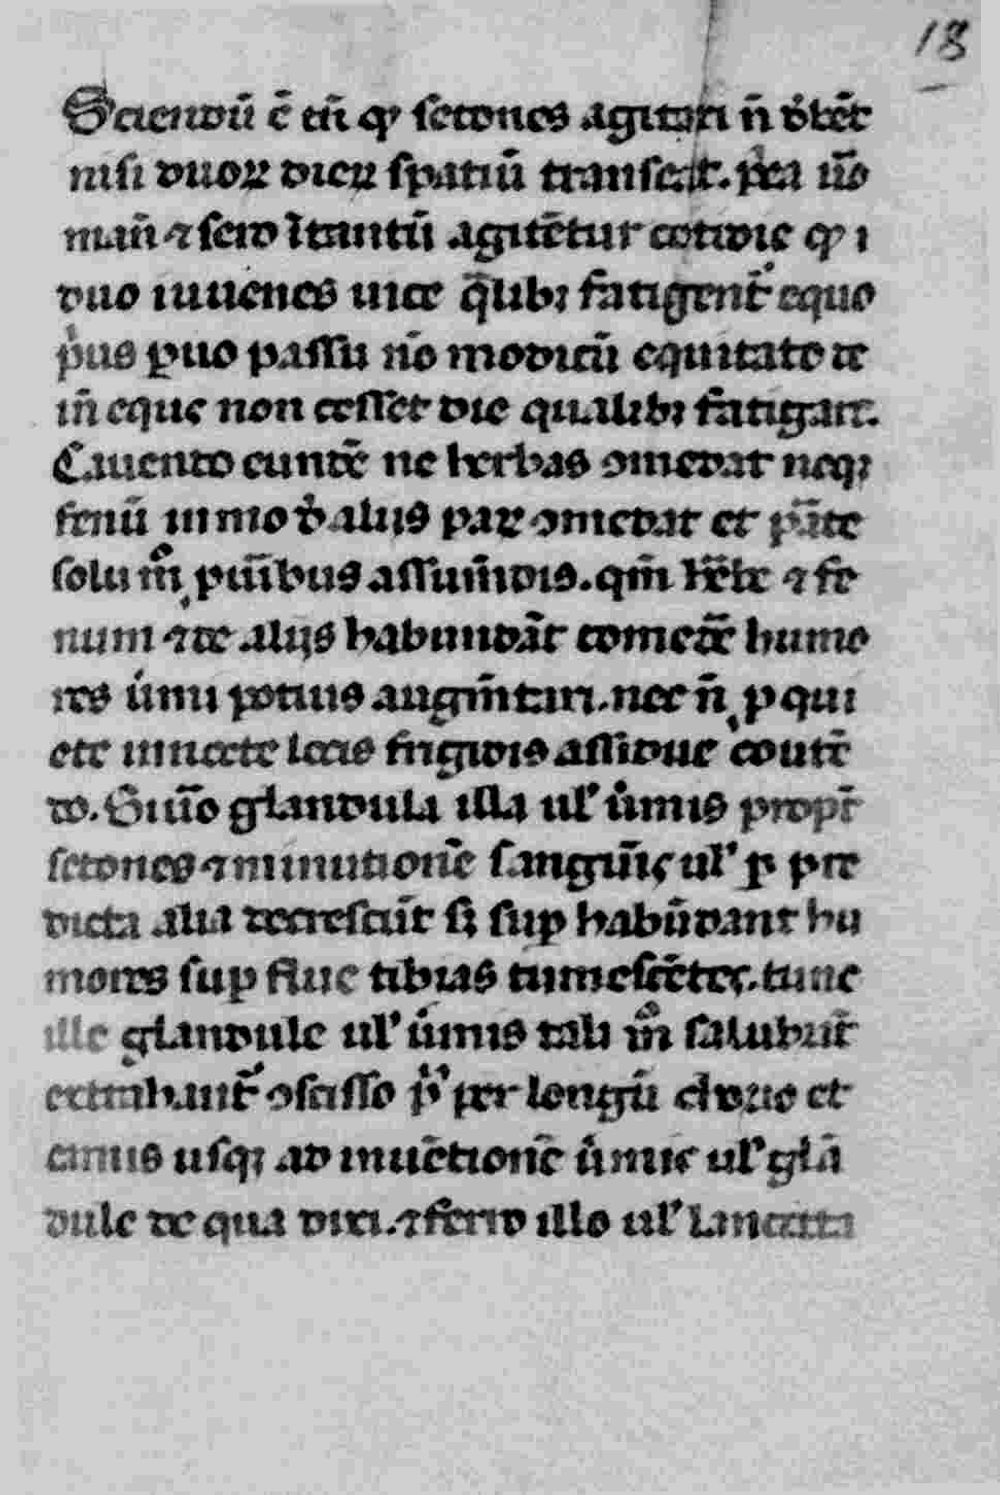 18
Sciendū ē tn̄ qͥ setones agitari n̄ dͤbēt
nisi duoꝝ dieꝝ spatiū transeat. p̄ea ūo
man̄ ⁊ sero ītantū agitētur cotidie qͥ ı
duo iuuenes uice q̄libꝫ fatigent᷑ equo
pͥus ꝑuo passu n̄o modicū equitato ⁊ e
in̄ equs non cesset die qualibꝫ fatigari.
Caueto eunte᷑ ne herbas ꝯmedat neqꝫ
fenū immo dͤ alijs paꝝ ꝯmedat et pā̄te
solum̊ ꝓ uirībus assum̄dis. qm̄ h̄be ⁊ fe
num ⁊ de alijs habundāt comede᷑ humo
res u̇mi potius augm̄tari. nec n̄ ꝓ qui
ete in nocte locis frigidis assidue coutē
do. Si ū̄o glandula illa ul᷑ u̇mis propt᷑
setones ⁊ minutionē sanguīs ul᷑ ꝓ pre
dicta alia decrescūt sꝫ suꝑ habūdant hu
mores suꝑ flue tibias tumescētes. tunc
ille glandule ul᷑ u̇mis tali m̊ salubrit᷑
extrahant᷑ ꝯscisso pͥ per longū corio et
carnis usqꝫ ad inuētionē u̇mis ul᷑ glā
dule de qua dixi. ⁊ ferro illo ul᷑ lancetta